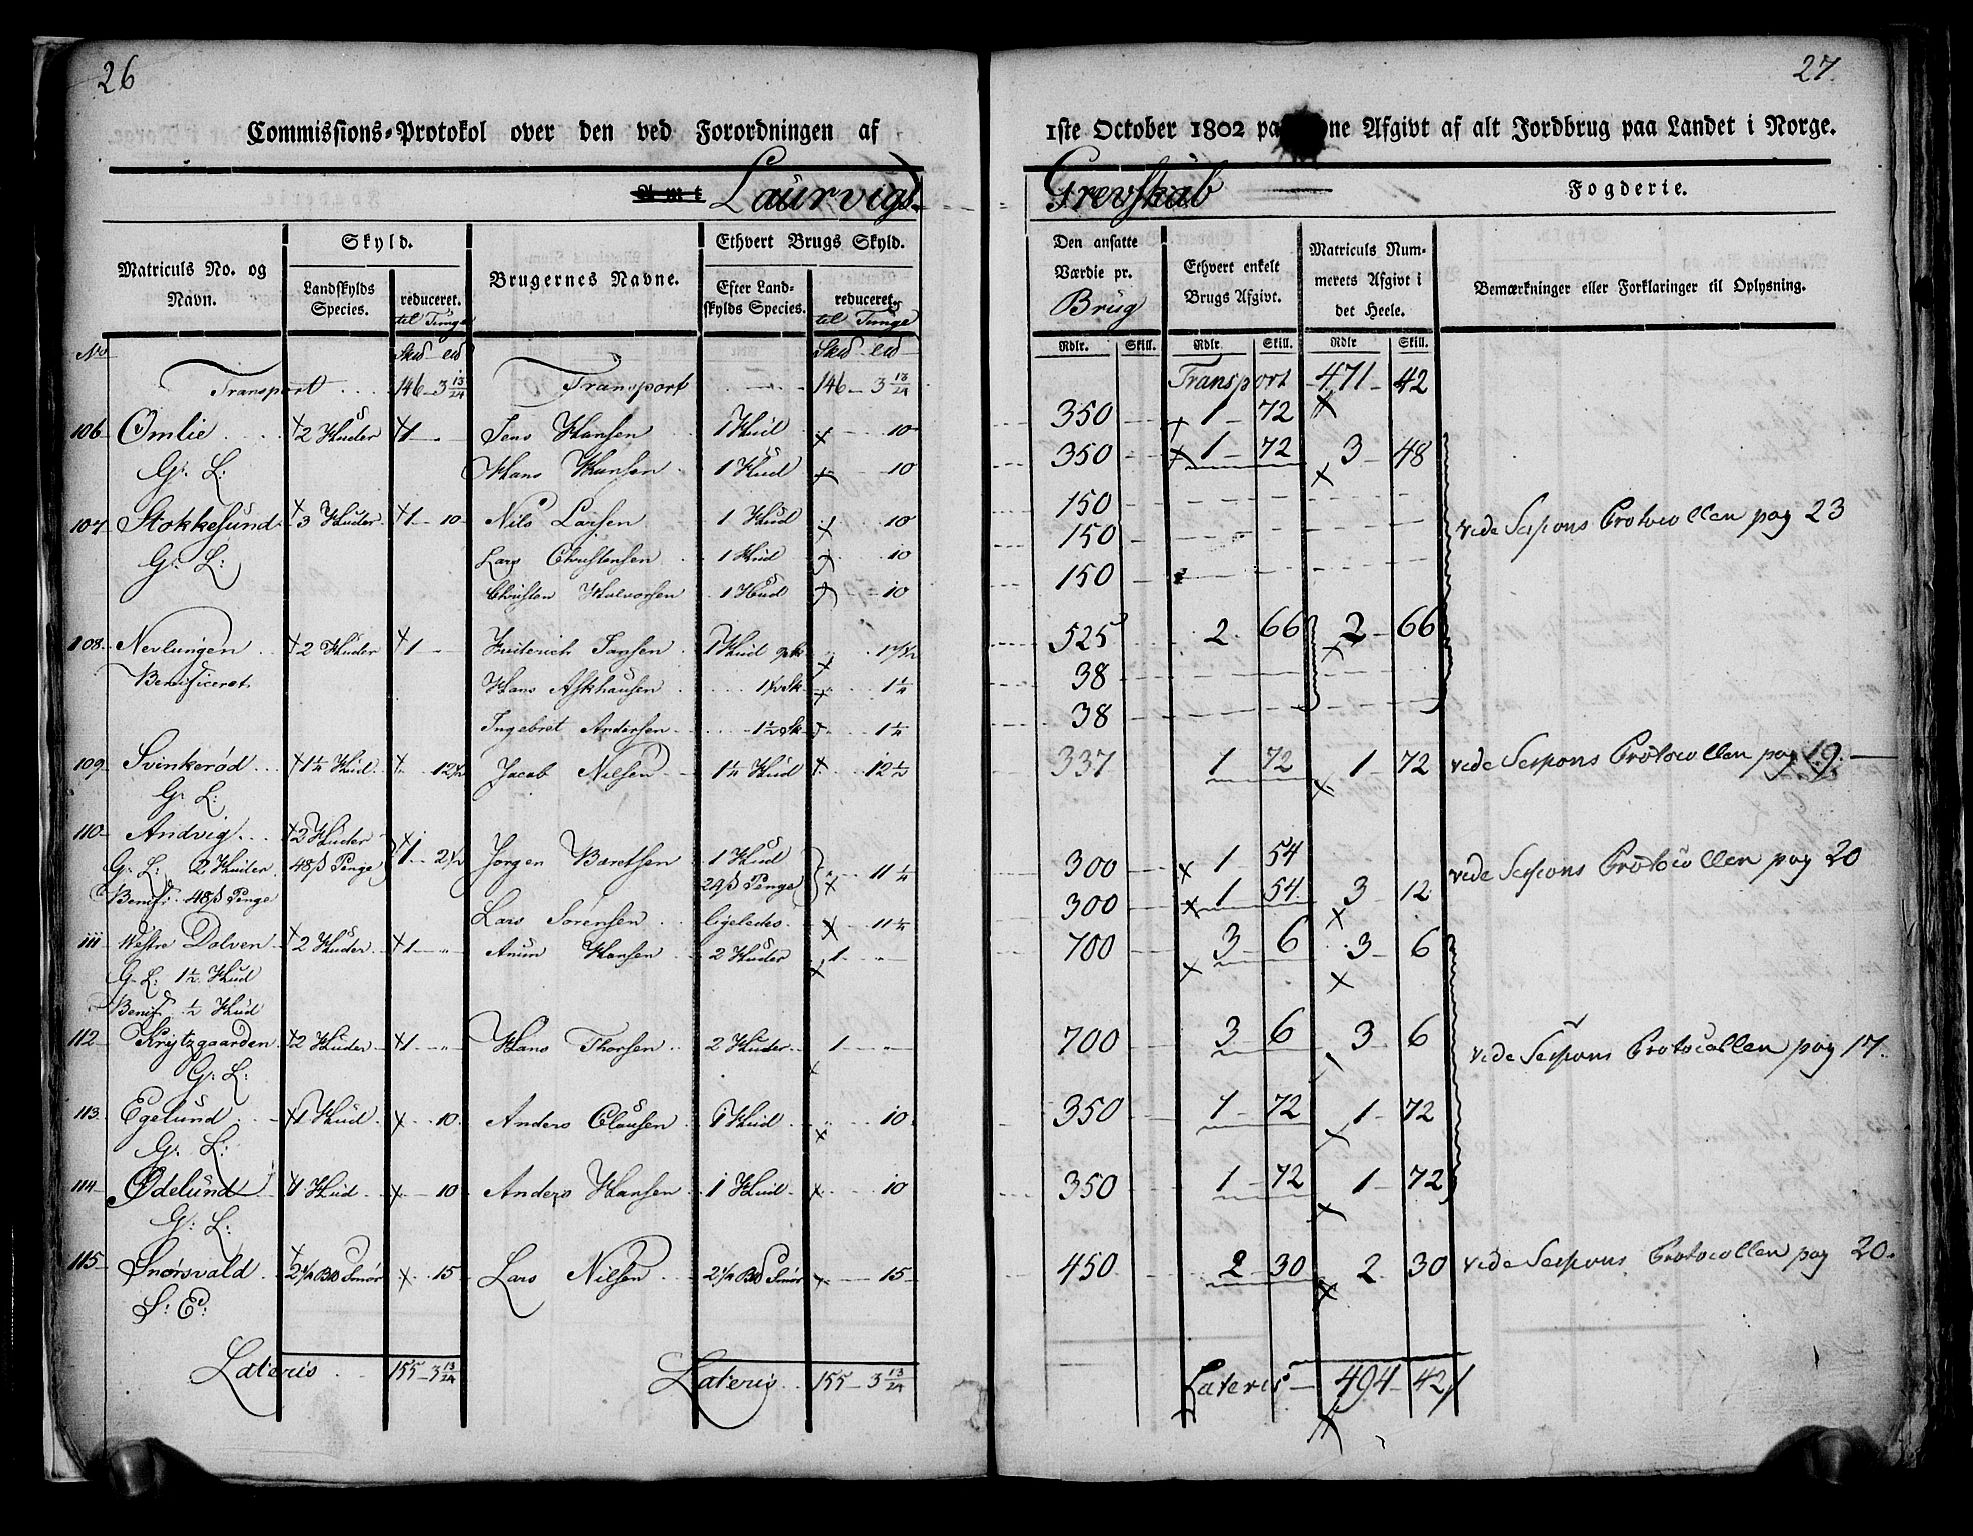 26
27.
Commissions-Protokol over den ved Forordningen af
1ste October 1802 Afgivt af alt Jordbrug paa Landet i Norge.
Amt Laurvigs-
Grevskab Fogderie.
Matriculs No. og Navn.
Skyld.
Landskylds Species.
reduceret. til Tunge
Brugernes Navne.
Ethvert Brugs Skyld.
Efter Landskylds Species.
reduceret. til Tunge
Den ansatte Værdie pr. Brug
Ethvert enkelt Brugs Afgivt.
Matriculs Nummerets Afgivt i det Heele.
Bemærkninger eller Forklaringer til Oplysning.
No
Rdlr. Skill. Rdlr Skill. Rdlr Skill.
Transport 146 - 3 13/24 Transport 146 - 3 13/24 Transport 471 - 42
106 Omlie 2 Huder 1 Jens Hansen 1 Hud 10 350 1 - 72
G: L: Hans Hansen 1 Hud 10 350 1 - 72 3 - 48
107 Stokkesund 3 Huder 1 - 10 Nils Larsen 1 Hud 10 150 vide Sessions Protocollen pag 23
G: L: Lars Christensen 1 Hud 10 150
Christen Halvorsen 1 Hud 10 150
108 Nevlungen 2 Huder 1 Friderich Jansen 1 Hud 525 2 - 66 2 - 66
Benificeret Hans Askhausen 1 1/4 38
Ingebret Andersen 1 1/2 Sk 1 1/4 38
109 Svinkerød 1 1/4 Hud 12 1/2 Jacob Nilsen 1 1/4 Hud 12 1/2 337 1 - 72 1 - 72 vide Sessions Protocollen pag 19.
G: L:
110 Andvig 2 Huder
G: L: 2 Huder 48 ß Penge 1 - 2 1/2 Jørgen Bærntsen 1 Hud 24 ß Penge 11 1/4 300 1 54 vide Sessions Protocollen pag 20
Benif: 48 ß Penge Lars Sørensen ligeledes 11 1/4 300 1 - 54 3 - 12
111 Westre Dolven 2 Huder 1 - " Anun Hansen 2 Huder 1 - " 700 3 - 6 3 - 6
G: L: 1 1/2 Hud
Benif: 1/2 Hud
112 Krÿtzgaarden 2 Huder 1 - " Hans Thorsen 2 Huder 1 700 3 - 6 3 - 6 vide Sessions Protocollen pag 17.
G: L:
113 Egelund 1 Hud 10 Anders Clausen 1 Hud 10 350 1 - 72 1 - 72
G: L:
114 Ødelund 1 Hud 10 Anders Hansen 1 Hud 10 350 1 - 72 1 - 72
G: L:
115 Snørsvald 2 1/4 Bd Smør 15 Lars Nilsen 2 1/4 Bd Smør 15 450 2 - 30 2 - 30 vide Sessions Protocollen pag 20.
S: E:
Lateris 155 - 3 13/24 Lateris 155 - 3 13/24 Lateris 494 - 42